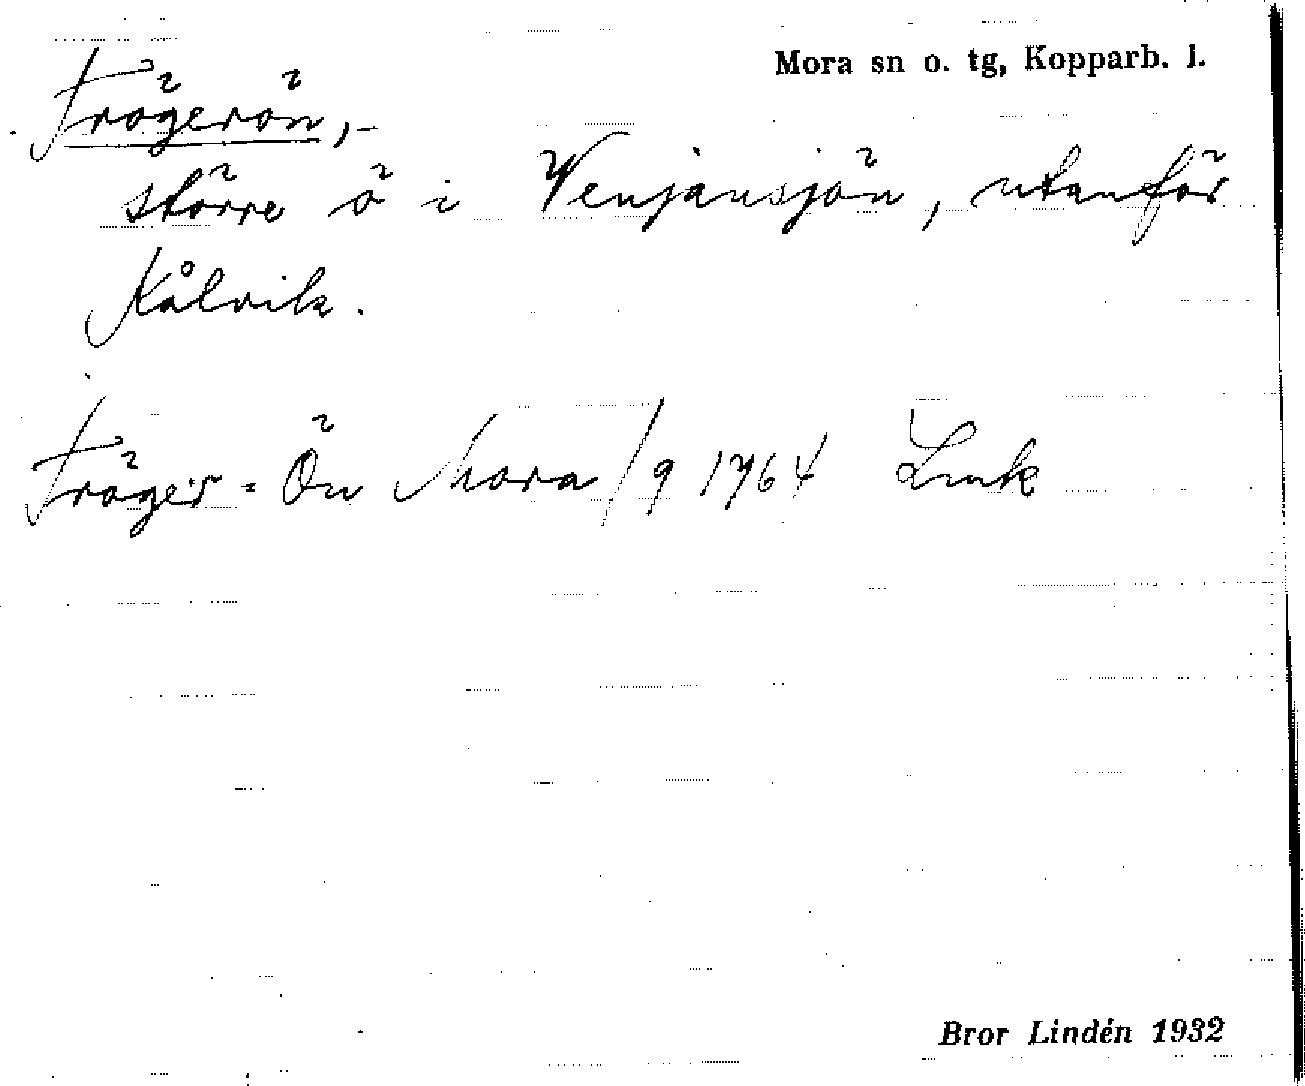 Mora sn o. tg, Kopparb. l.
Frögerön,-
större ö i Venjansjön, utanför
Kålvik.
Fröger = Ön Mora /9 1764 Lmk
Bror Lindén 1932